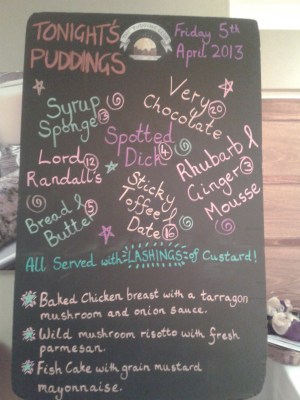 TONIGHT'S
PUDDINGS
Friday 5th
April 2013
Syrup
Sponge 13
Very 20
Chocolate
Spotted
Dick 4
Lord 12
Randall's
Rhubarb &
Ginger 3
Mousse
Sticky
Toffee &
Date 15
Bread & 5
Butter
All Served with LASHINGS of Custard!
Baked Chicken breast with a tarragon
mushroom and onion sauce.
Wild mushroom risotto with fresh
parmesan.
Fish Cake with grain mustard
mayonnaise.